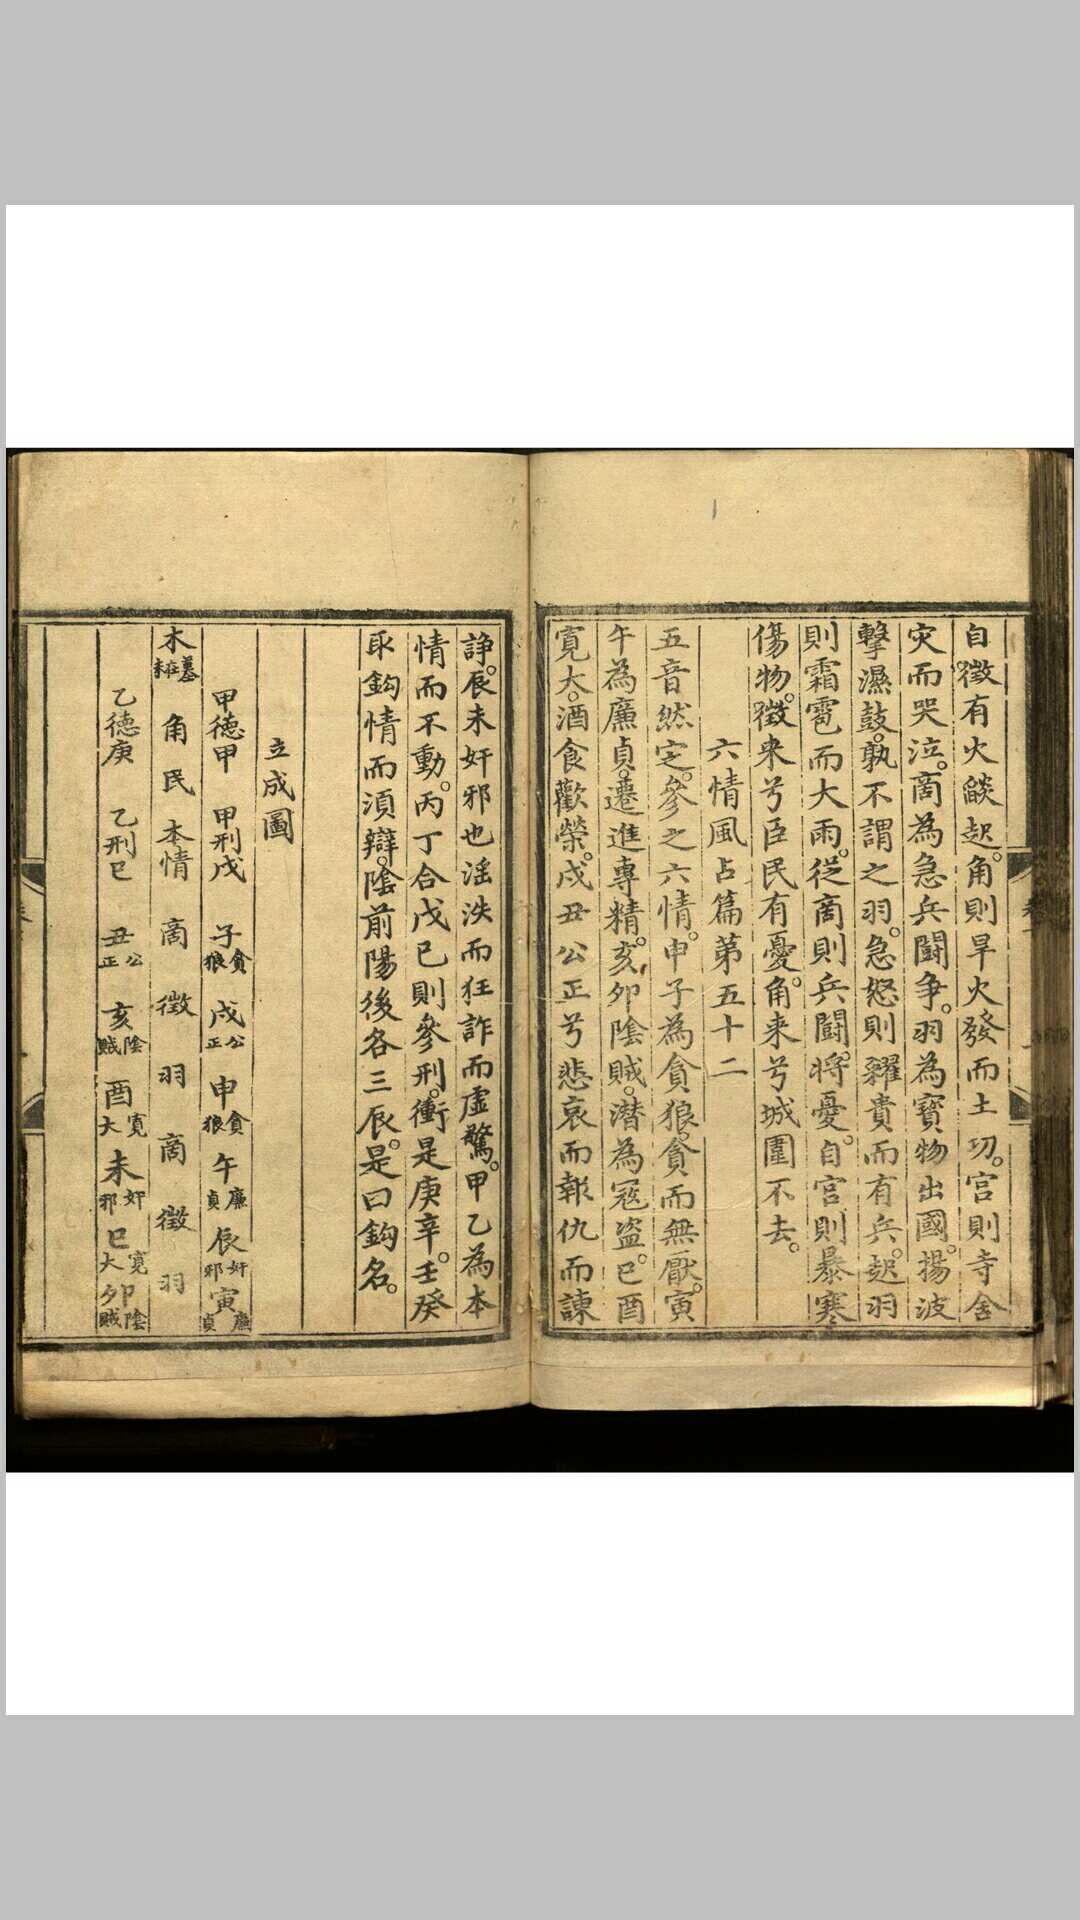 自徵有火燄起角則旱火發而土功宮則寺舍
灾而哭泣。啇為急兵鬪争。羽為寳物出國。揚波
擊濕鼓。孰不謂之羽。急怒則糴貴而有兵。起羽
則霜雹而大雨。從啇則兵鬪。將憂。自宮則暴寒
傷物。徵来兮臣民有憂。角来兮城圍不去。
六情風占篇第五十二
五音然定。参之六情。申子為貪狼。貪而無厭。寅
午為廉貞。遷進專精。亥卯陰賊。潜為冦盗。巳酉
寛大。酒食歡榮。戌丑公正兮悲哀而報仇而諫
諍。辰未奸邪也滛泆而狂詐而虚驚。甲乙為本
情而不動。丙丁合戊巳則参刑。衝是庚辛。壬癸
取鈎情而湏辯。陰前陽後各三辰。是曰鈎名。
立成圖
甲德甲 甲刑戌 子貪狼 戌公正 申貪狼 午廉貞 辰奸邪 寅廉貞
木墓在未 角 民 本情 啇 徵 羽 啇 徵 羽
乙德庚 乙刑巳 丑公正 亥陰賊 酉寛大 未奸邪 巳寛大 卯陰賊